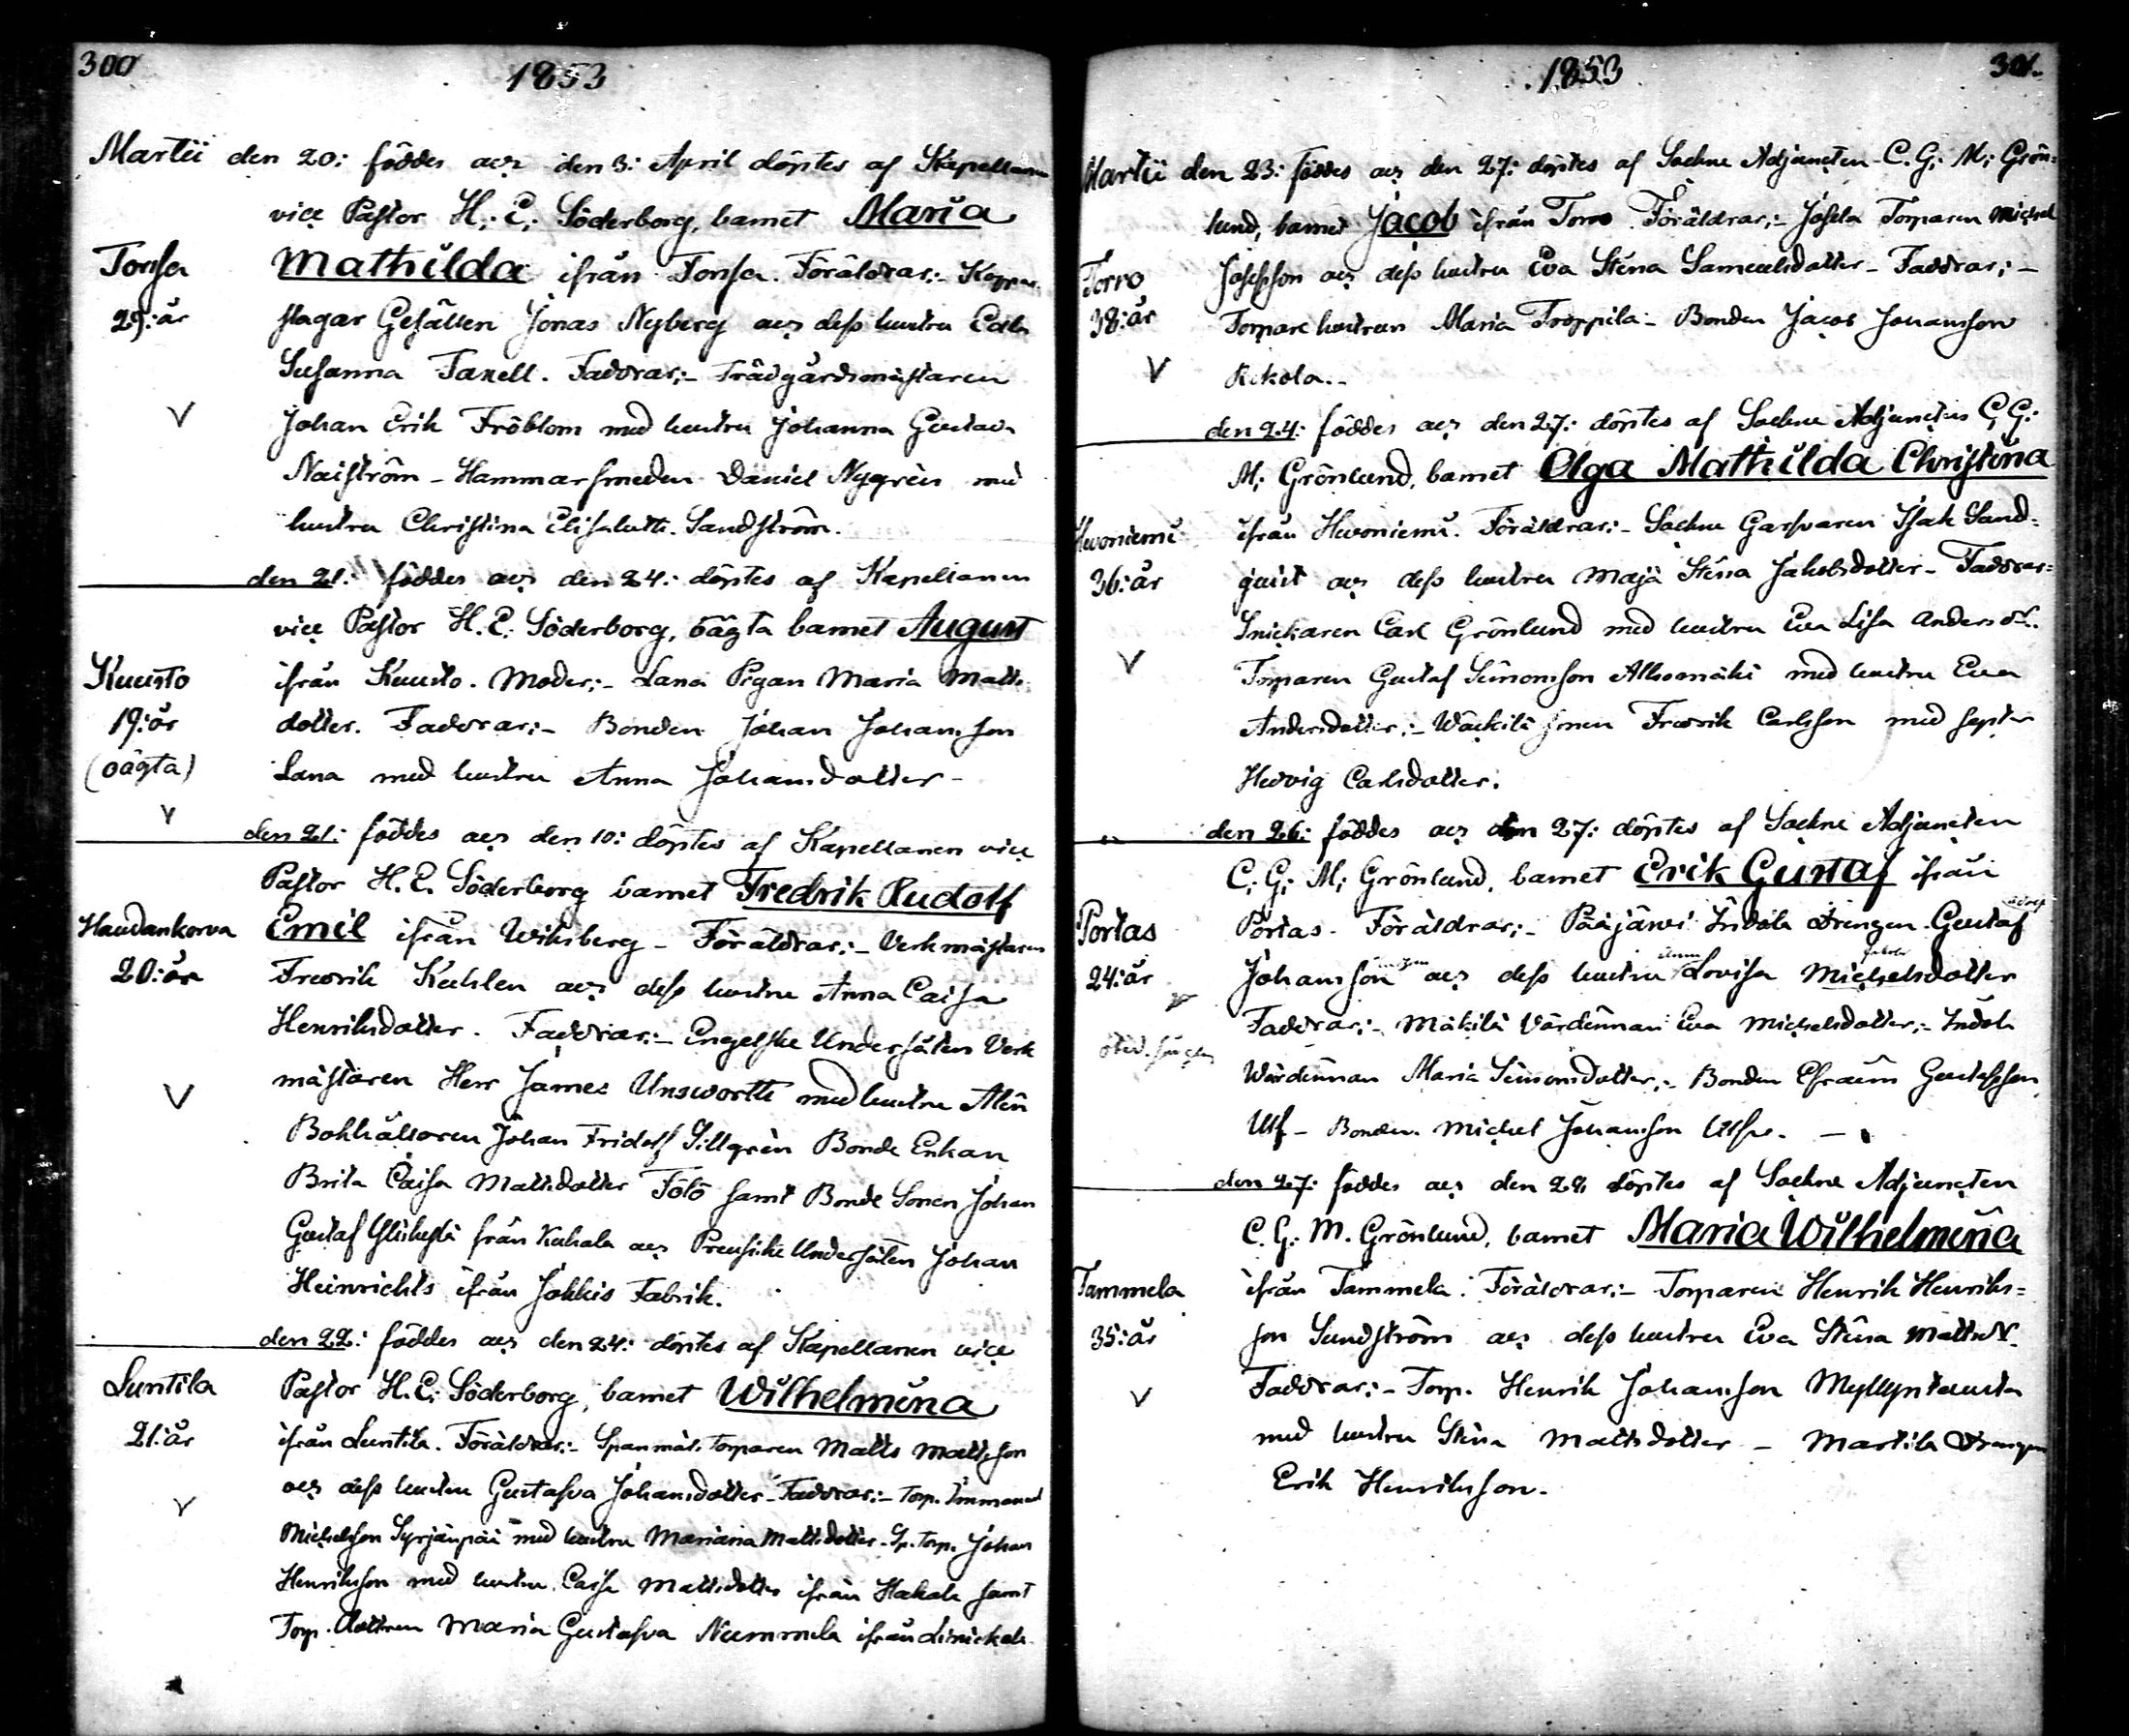 300
1853
Martii den 20: föddes och den 3: April döptes af Kapellanen
vice Pastor H: E: Söderborg, barnet Maria
Tonsa
Mathilda ifrån Tonsa. Föräldrar:- Koppar
29: år
slagar Gesällen Jonas Nyberg och dess hustru Edla
Susanna Taxell. Faddrar:- Trädgårdsmästaren
V
Johan Erik Fröblom med hustru Johanna Gustava
Naiström - Hammarsmeden Daniel Nygrén med
hustru Christina Elisabeth Sandström.
den 21: föddes och den 24: döptes af Kapellanen
vice Pastor H. E: Söderborg, oägta barnet August
Kuusto
ifrån Kuusto. Moder:- Lana Pigan Maria Matts
19: år
dotter. Faddrar:- Bonden Johan Johansson
(oägta)
Lana med hustru Anna Johansdotter -
V
den 21: föddes och den 10: döptes af Kapellanen vice
Pastor H. E. Söderborg barnet Fredrik Rudolf
Haudankorva
Emil ifrån Wiksberg - Föräldrar:- Verkmästaren
20: år
Fredrik Kuhlen och dess hustru Anna Caisa
Henriksdotter. Faddrar:- Engelske Undersåten Verk
mästaren Herr James Unsworth med hustru Alin
V
Bokhållaren Johan Fridolf Tillgrén Bonde Enkan
Brita Caisa Mattsdotter Tölö samt Bonde Sonen Johan
Gustaf från Kuhala och Preusiske Undersåten Johan
Heinrichts ifrån Jokkis Fabrik.
den 22: föddes och den 24: döptes af Kapellanen vice
Luntila
Pastor H. E: Söderborg, barnet Wilhelmina
21: år
ifrån Luntila. Föräldrar:- Spanmåls Torparen Matts Mattsson
och dess hustru Gustafva Johansdotter - Faddrar:- Torp. Immanuel
V
Michelsson Syrjänpää med hustru Mariana Mattsdotter - Sp. Torp. Johan
Henriksson med hustru Caisa Mattsdotter ifrån Hakala samt
Torp. dottren Maria Gustafva Nummela ifrån
1853
301.
Martii den 23: föddes och den 27: döptes af Sockne Adjuncten C. G: M: Grön=
lund, barnet Jacob ifrån Torro. Föräldrar:- Torparen Michel
Torro
Josefsson och dess hustru Eva Stina Samuelsdotter - Faddrar:-
38: år
Torpare hustrun Maria Troppila - Bonden Jacob Johansson
V
Rekola.-
den 24: föddes och den 27: döptes af Sockne Adjuncten C G:
M: Grönlund, barnet Olga Mathilda Christina
Hevoniemi
ifrån Hevoniemi. Föräldrar:- Sockne Garfvaren Isak Sand=
36: år
quist och dess hustru Maja Stina Jakobsdotter - Faddrar=
Snickaren Carl Grönlund med hustru Eva Lisa Anders dr.
V
Torparen Gustaf Simonsson Alhomäki med hustru Eva
Andersdotter:- Fredrik Carlsson med
Hedvig Carlsdotter.
den 26: föddes och den 27: döptes af Sockne Adjuncten
C: G: M: Grönlund, barnet Erik Gustaf ifrån
Portas
Portas. Föräldrar:- Pääjärvi Indola Drengen Gustaf
24: år
Johansson och dess hustru Lovisa Michelsdotter
Faddrar:- Mäkilä Värdinnan Eva Michelsdotter:- Indola
Wärdinnan Maria Simonsdotter:- Bonden Efraim Gustafsson
Ulf - Bonden Michel Johansson -
den 27: föddes och den 29. döptes af Sockne Adjuncten
C. G: M. Grönlund, barnet Maria Wilhelmina
Tammela
ifrån Tammela. Föräldrar:- Torparen Henrik Henriks=
35: år
son Sundström och dess hustru Eva Stina Matts dr.
V
Faddrar:- Torp. Henrik Johansson Myllyntausta
med hustru Stina Mattsdotter - Martila Drengen
Erik Henriksson.